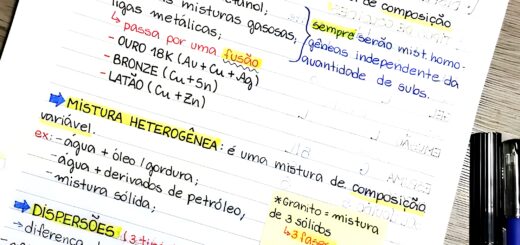 etanol;
as misturas gasosas;
ligas metálicas;
↳ passa por uma fusão
- OURO 18K (Au + Cu + Ag)
- BRONZE (Cu + Sn)
- LATÃO (Cu + Zn)
de composição
sempre serão mist. homo-
gêneas independente da
quantidade de subs.
➡ MISTURA HETEROGÊNEA: é uma mistura de composição
variável.
ex: - água + óleo / gordura;
- água + derivados de petróleo,
- mistura sólida;
* Granito = mistura
de 3 sólidos
↳ 3 fases
➡ DISPERSÕES (3 
→ diferença